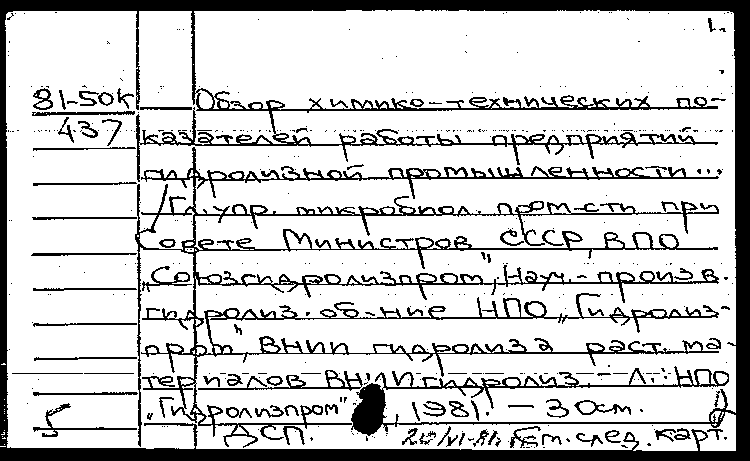 1.
81-50к
437
Обзор химико-технических по-
казателей работы предприятий
гидролизной промышленности...
/Гл. упр. микробиол. пром-сти при
Совете Министров СССР, ВПО
„Союзгидролизпром", Науч.-произв.
гидролиз. об-ние НПО „Гидролиз-
пром", ВНИИ гидролиза раст. ма-
териалов ВНИИгидролиз. - Л.: НПО
„Гидролизпром", 1981. - 30см.
5
ДСП. 20/VI-81г. См. след. карт.